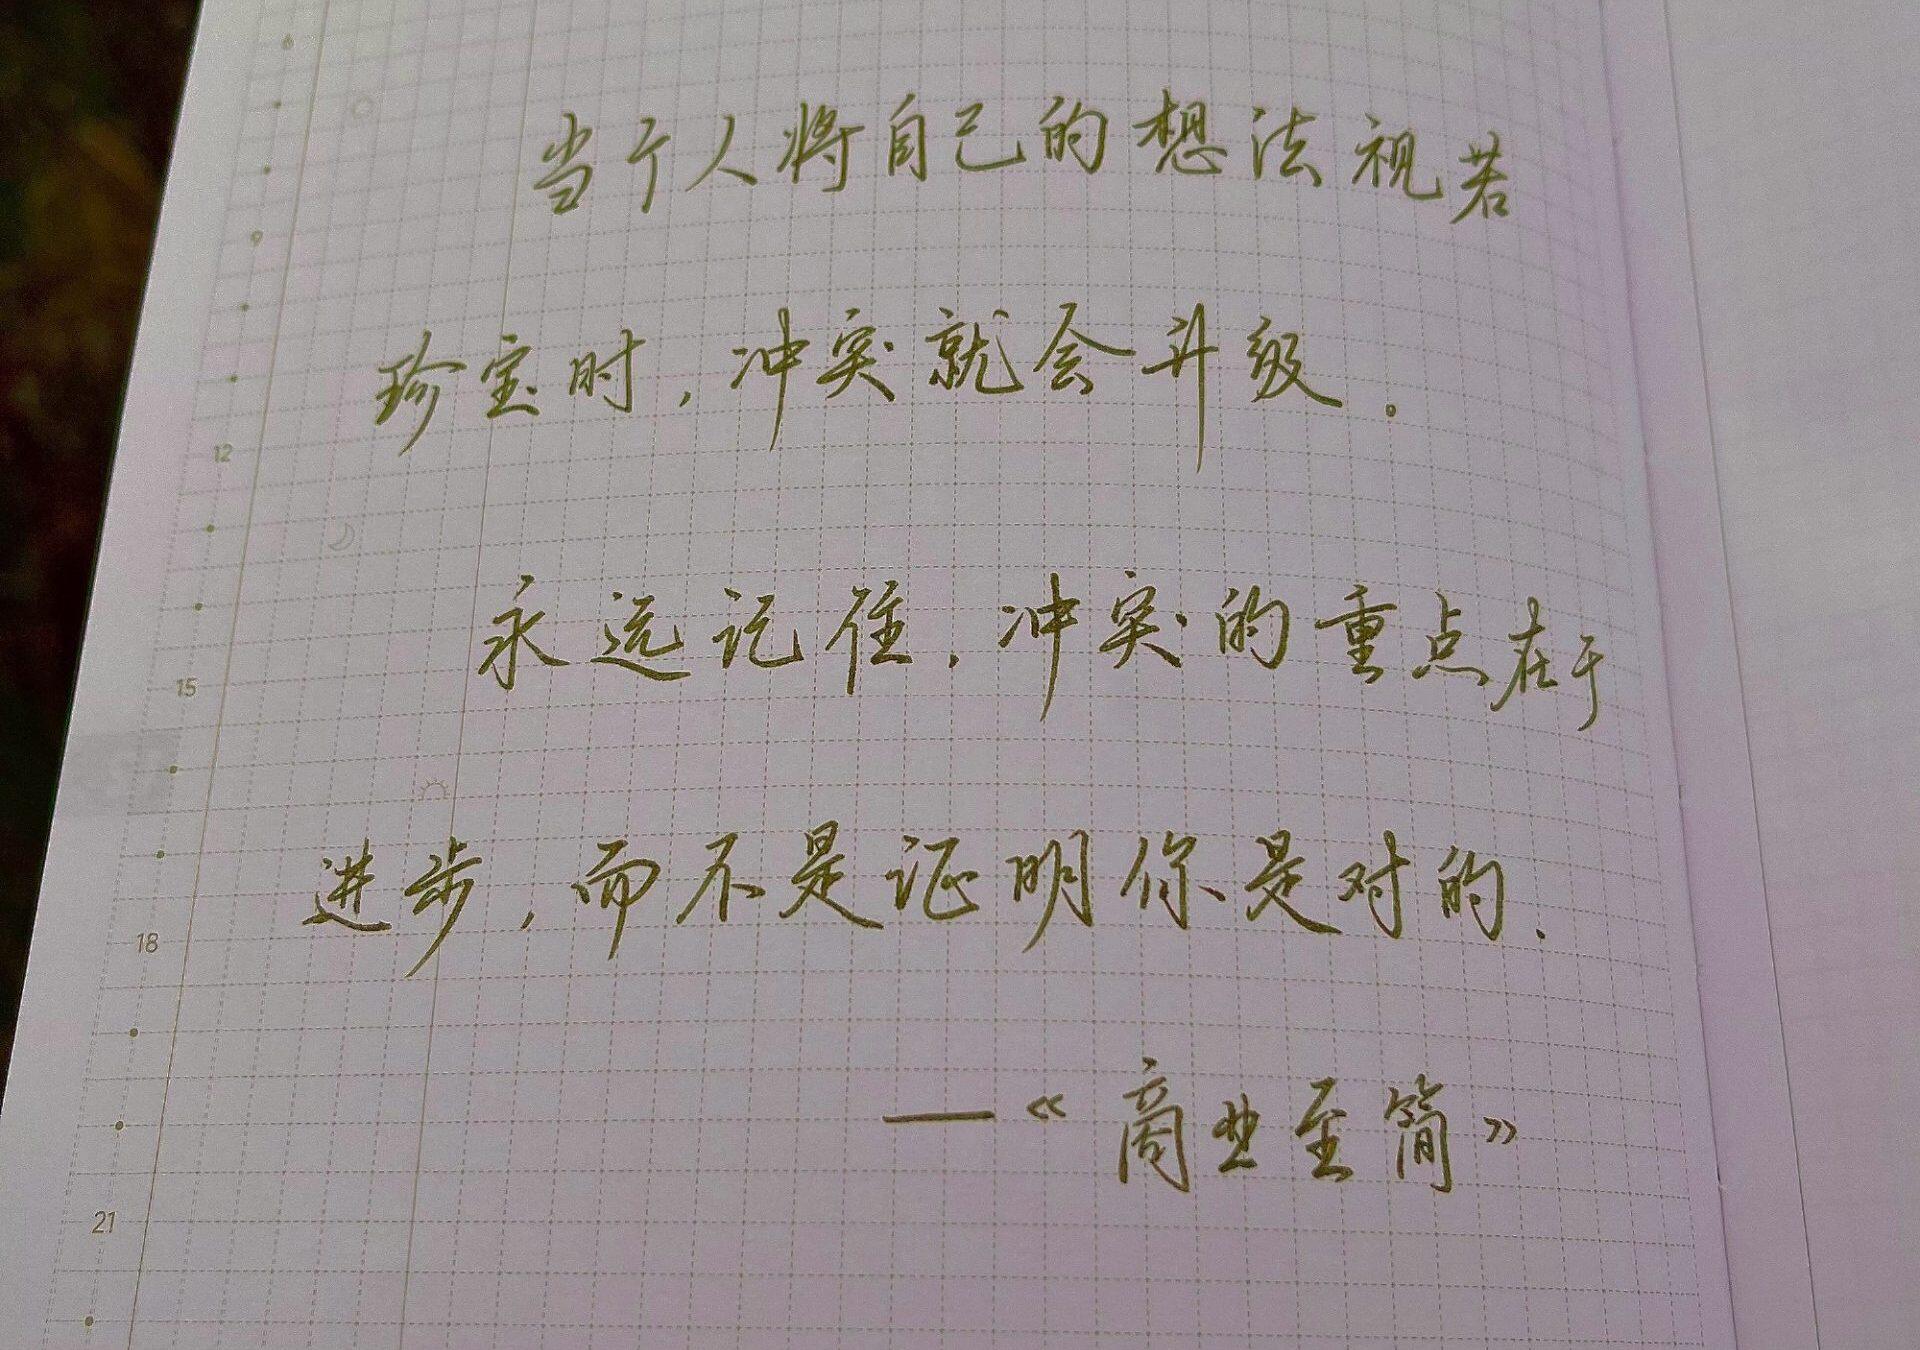 当个人将自己的想法视若
珍宝时，冲突就会升级。
永远记住，冲突的重点在于
进步，而不是证明你是对的.
—《商业至简》
6
9
12
15
18
21